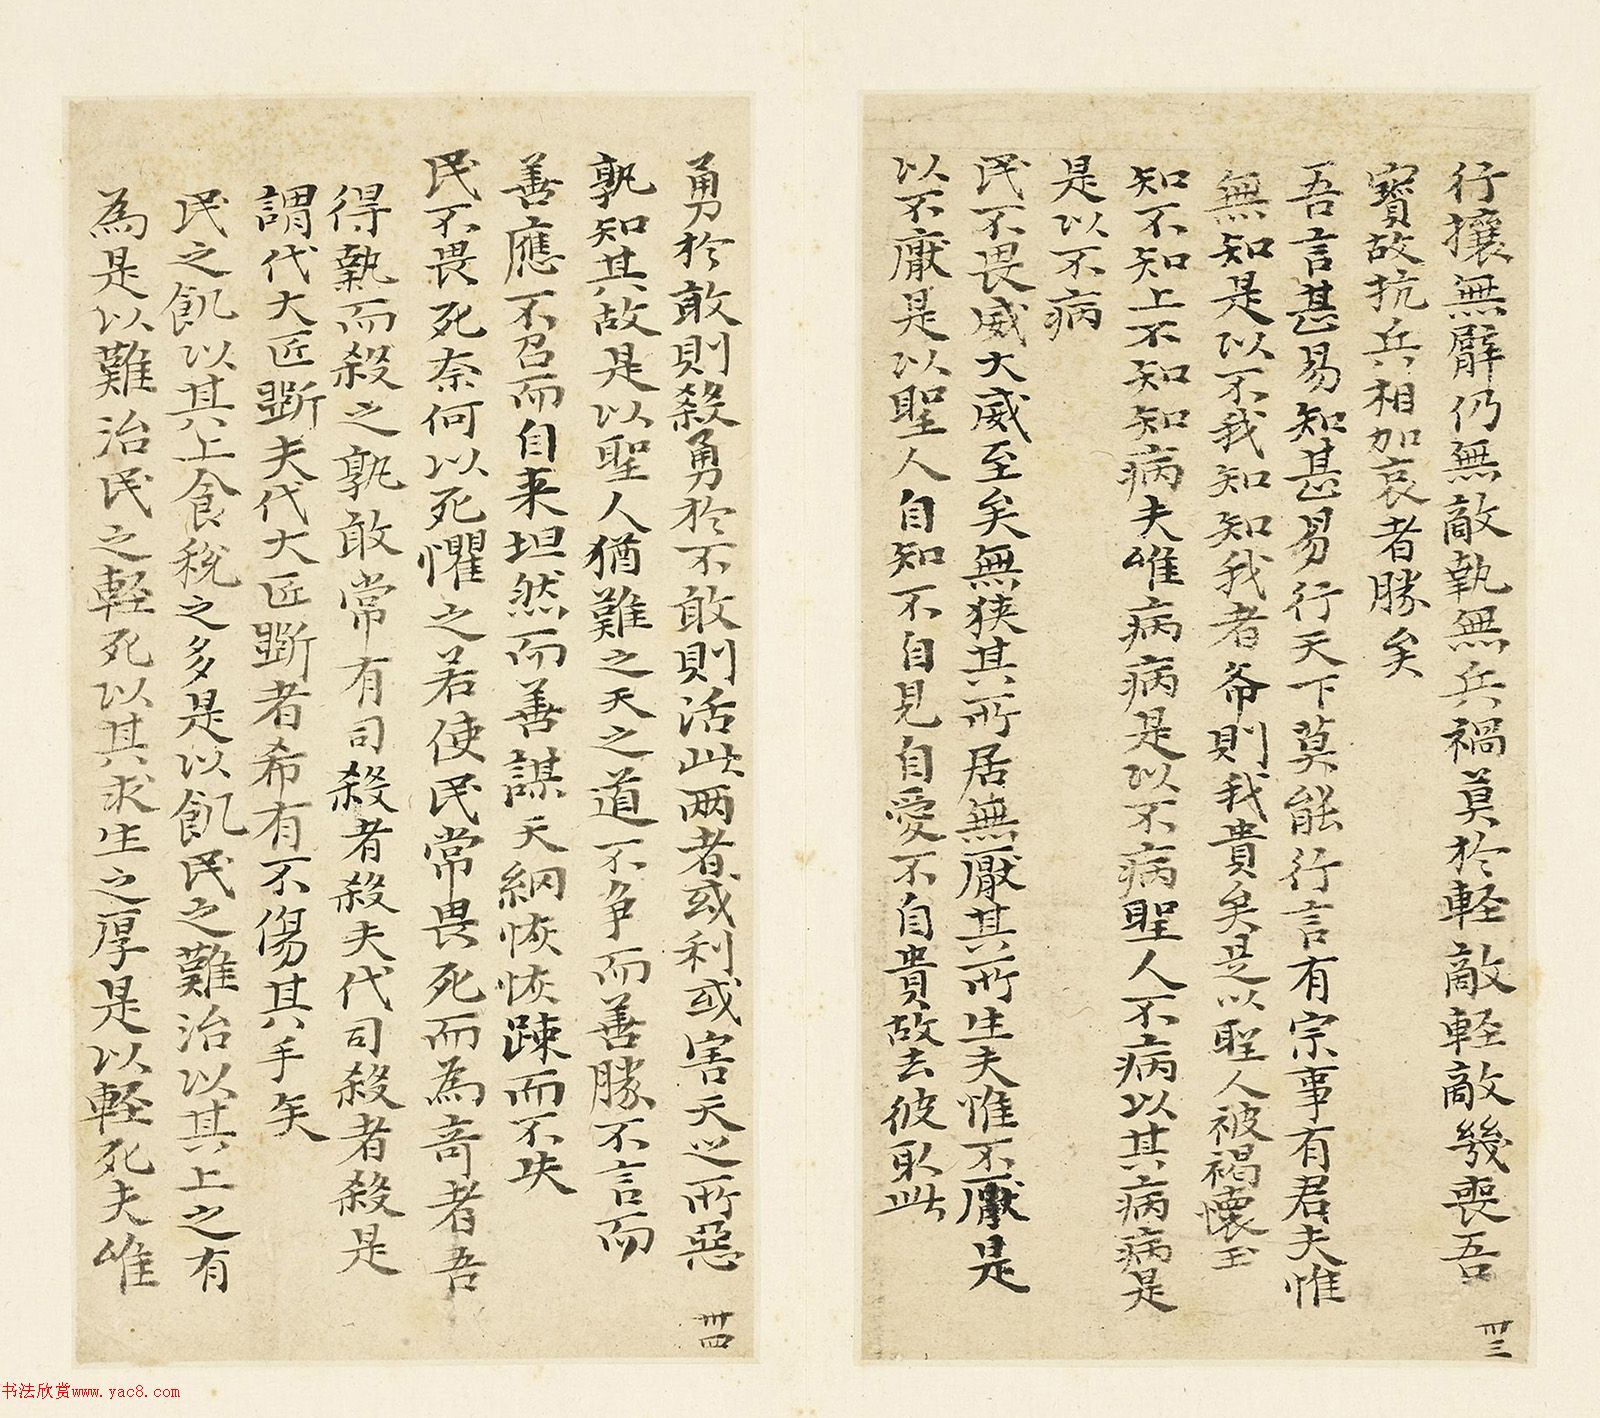 行攘無臂仍無敵執無兵禍莫於軽敵軽敵幾喪吾
寶故抗兵相加哀者勝矣
吾言甚易知甚易行天下莫能行言有宗事有君夫惟
無知是以不我知知我者希則我貴矣是以聖人被褐懷玉
知不知上不知知病夫唯病病是以不病聖人不病以其病病是
是以不病
民不畏威大威至矣無狭其所居無厭其所生夫惟不厭是
以不厭是以聖人自知不自見自愛不自貴故去彼取此
卅三
勇於敢則殺勇於不敢則活此两者或利或害天之所惡
孰知其故是以聖人猶難之天之道不争而善勝不言而
善應不召而自来坦然而善謀天網恢恢踈而不失
民不畏死奈何以死懼之若使民常畏死而為奇者吾
得執而殺之孰敢常有司殺者殺夫代司殺者殺是
謂代大匠斲夫代大匠斲者希有不傷其手矣
民之飢以其上食稅之多是以飢民之難治以其上之有
為是以難治民之軽死以其求生之厚是以軽死夫唯
卅四
书法欣赏www.yac8.com